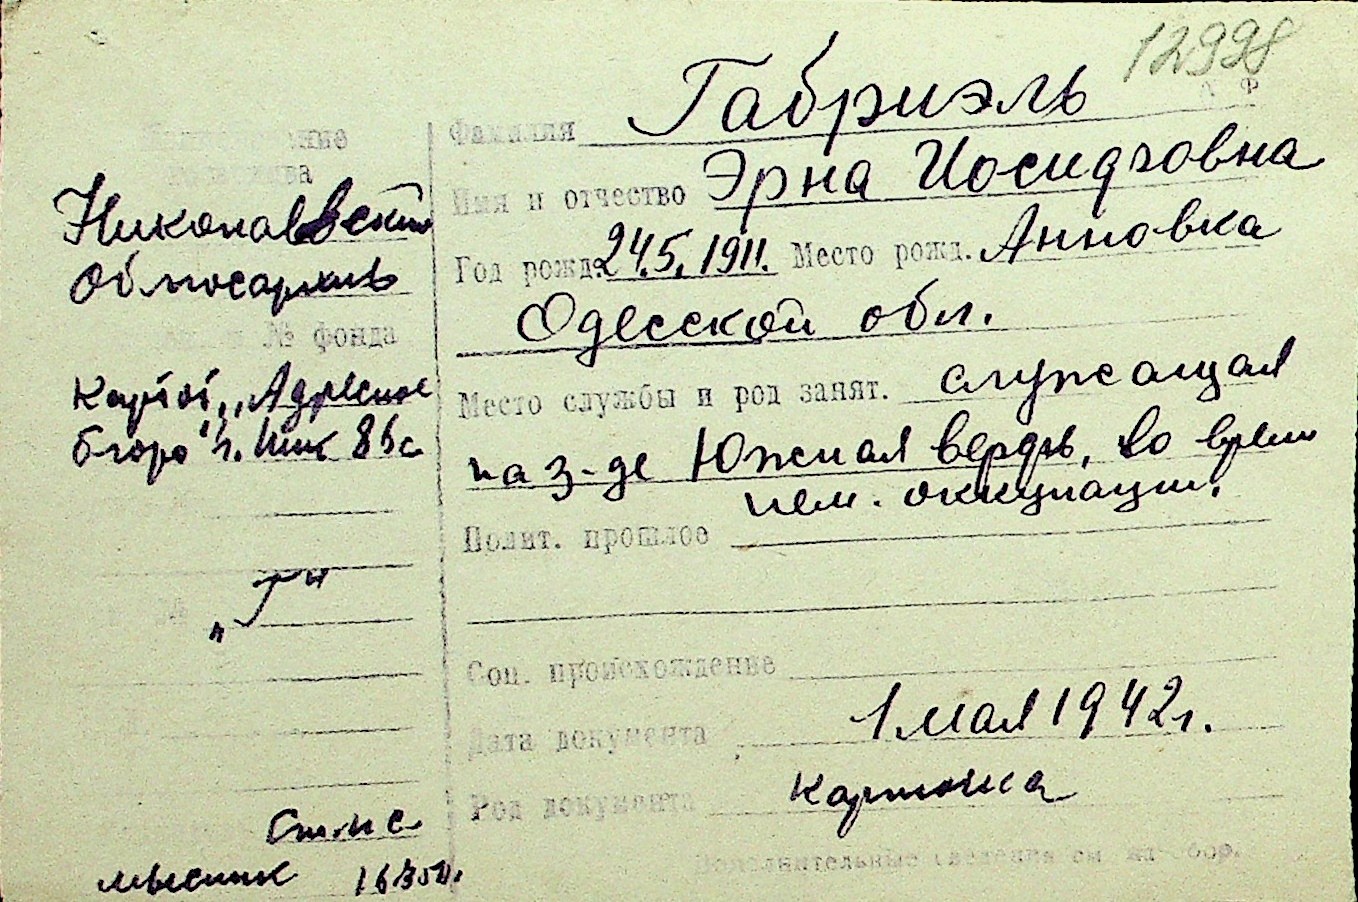 12998
Фамилия Габриэль
Имя и отчество Эрна Иосифовна
Год рожд. 24.5.1911. Место рожд. Анновка
Одесской обл.
Место службы и род занят. служащая
на з-де Южная верфь, во время
нем. оккупации.
Полит. прошлое
Соц. происхождение
Дата документа 1 мая 1942 г.
Род документа карточка
Дополнительные сведения см на обор.
Наименование
госархива
Николаевский
Облгосархив
№ фонда
Адресное
бюро" г. Ник
№ „Г"